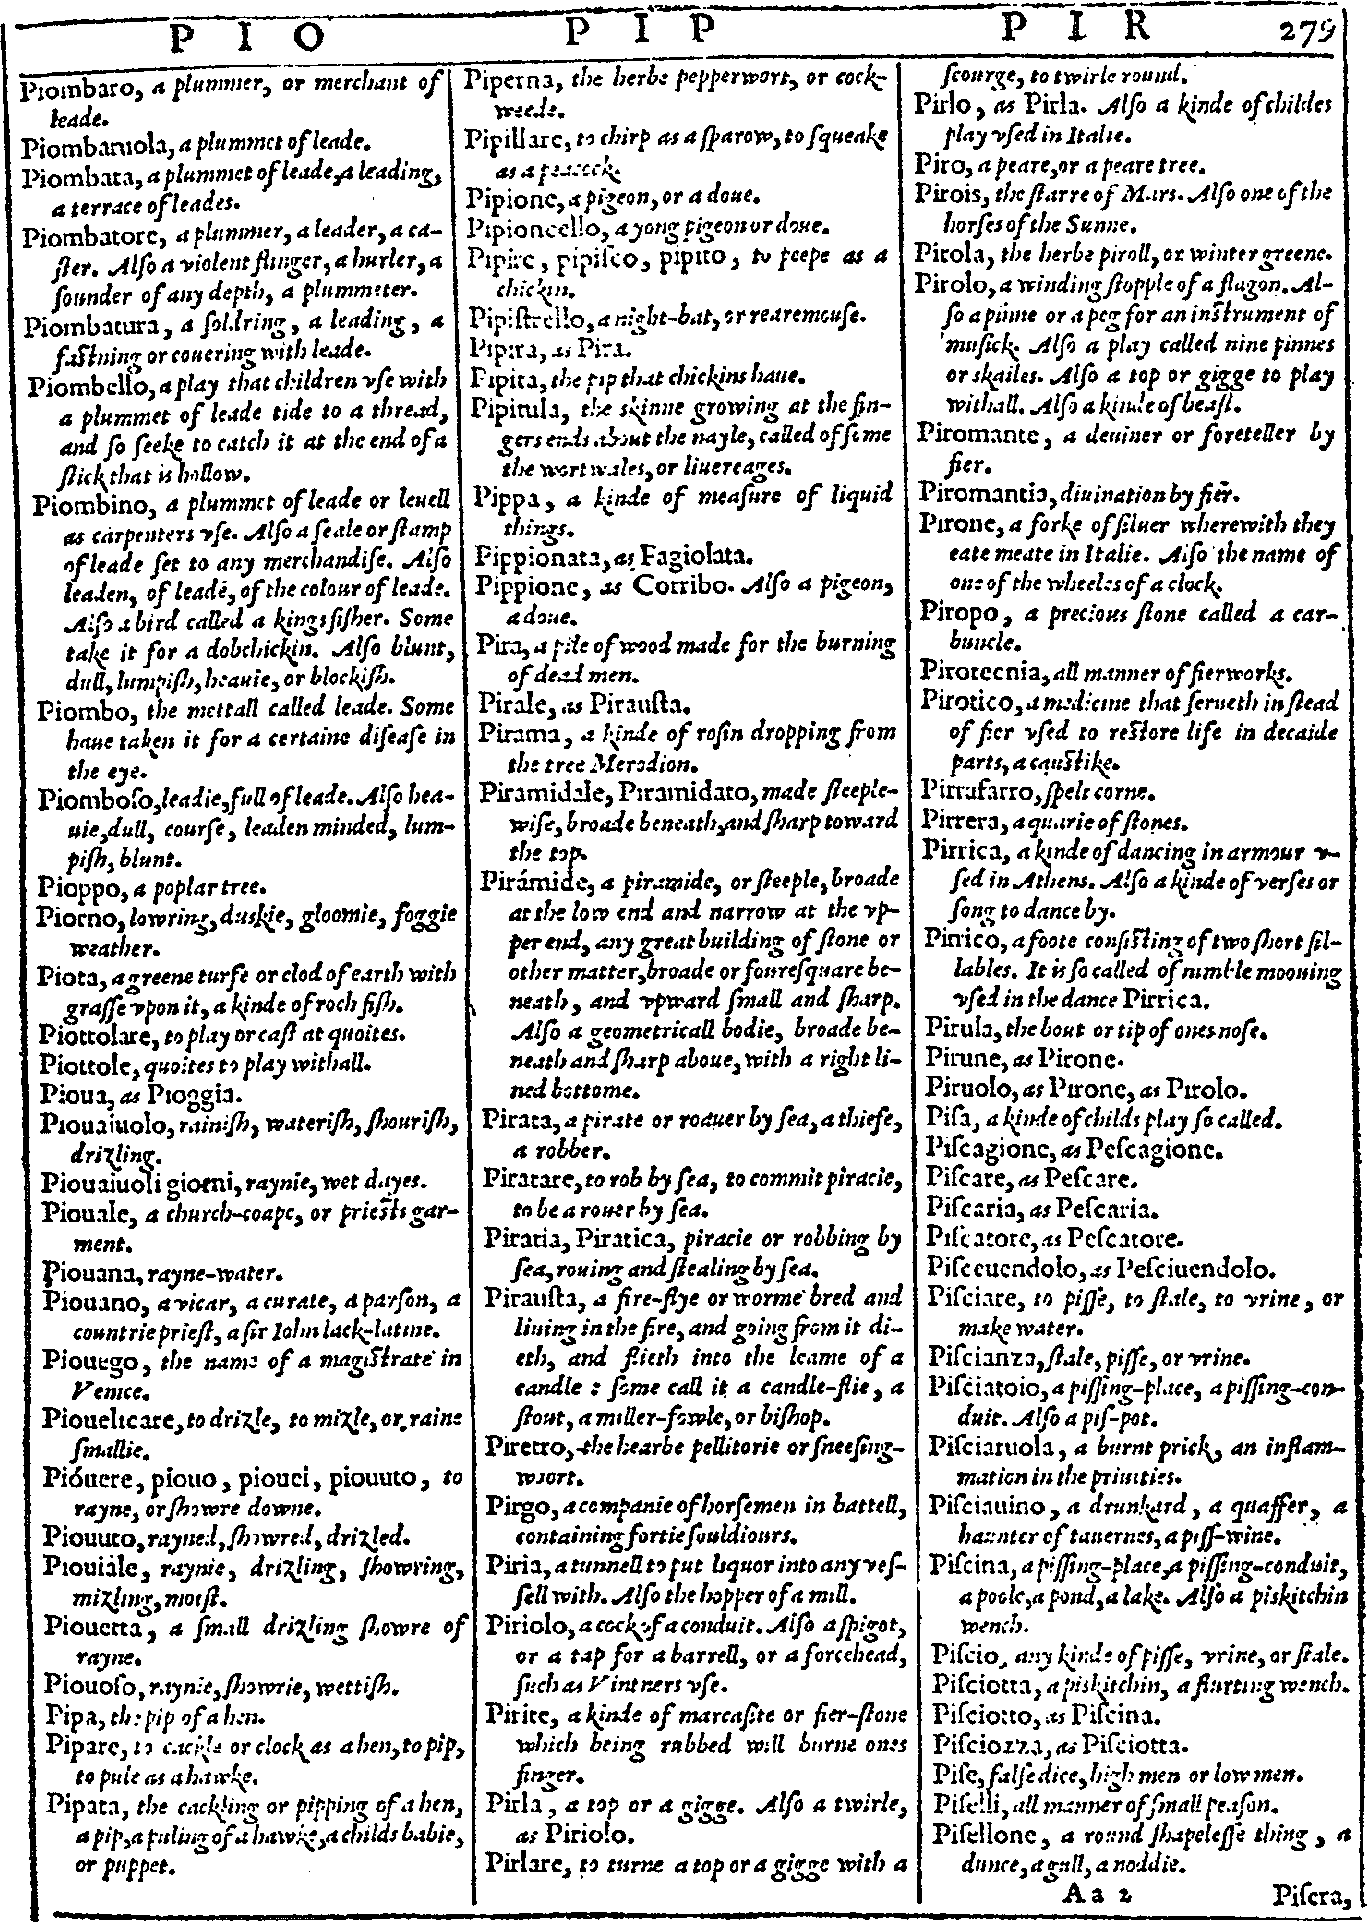 P I O
P I P
P I R
279
Piombaro, a plummer, or merchant of
leade.
Piombaruola, a plummet of leade.
Piombata, a plummet of leade, a leading,
a terrace of leades.
Piombatore, a plummer, a leader, a ca-
ster. Also a violent flinger, a hurler, a
sounder of any depth, a plummeter.
Piombatura, a soldring, a leading, a
fastning or couering with leade.
Piombello, a play that children vse with
a plummet of leade tide to a thread,
and so seeke to catch it at the end of a
stick that is hollow.
Piombino, a plummet of leade or leuell
as carpenters vse. Also a seale or stamp
of leade set to any merchandise. Also
leaden, of leade, of the colour of leade.
Also a bird called a kingsfisher. Some
take it for a dobchickin. Also blunt,
dull, lumpish, heauie, or blockish.
Piombo, the mettall called leade. Some
haue taken it for a certaine disease in
the eye.
Piomboso, leadie, full of leade. Also hea-
uie, dull, course, leaden minded, lum-
pish, blunt.
Pioppo, a poplar tree.
Piorno, lowring, duskie, gloomie, foggie
weather.
Piota, a greene turfe or clod of earth with
grasse vpon it, a kinde of roch fish.
Piottolare, to play or cast at quoites.
Piottole, quoites to play withall.
Pioua, as Pioggia.
Piouaiuolo, rainish, waterish, shourish,
drizling.
Piouaiuoli giorni, raynie, wet dayes.
Piouale, a church-coape, or priests gar-
ment.
Piouana, rayne-water.
Piouano, a vicar, a curate, a parson, a
countrie priest, a sir Iohn lack-latine.
Piouego, the name of a magistrate in
Venice.
Piouelicare, to drizle, to mizle, or raine
smallie.
Pióuere, piouo, piouei, piouuto, to
rayne, or showre downe.
Piouuto, rayned, showred, drizled.
Piouiále, raynie, drizling, showring,
mizling, moist.
Piouetta, a small drizling showre of
rayne.
Piouoso, raynie, showrie, wettish.
Pipa, the pip of a hen.
Pipare, to cackle or clock as a hen, to pip,
to pule as a hawke.
Pipata, the cackling or pipping of a hen,
a pip, a puling of a hawke, a childs babie,
or puppet.
Piperna, the herbe pepperwort, or cock-
weede.
Pipillare, to chirp as a sparow, to squeake
as a peacock.
Pipione, a pigeon, or a doue.
Pipioncello, a yong pigeon or doue.
Pipire, pipisco, pipito, to peepe as a
chickin.
Pipistrello, a night-bat, or rearemouse.
Pipita, as Pira.
Pipita, the pip that chickins haue.
Pipitula, the skinne growing at the fin-
gers ends about the nayle, called of some
the wortwales, or liuereages.
Pippa, a kinde of measure of liquid
things.
Pippionata, as Fagiolata.
Pippione, as Corribo. Also a pigeon,
a doue.
Pira, a pile of wood made for the burning
of dead men.
Pirale, as Pirausta.
Pirama, a kinde of rosin dropping from
the tree Merodion.
Piramidále, Piramidato, made steeple-
wise, broade beneath, and sharp toward
the top.
Pirámide, a piramide, or steeple, broade
at the low end and narrow at the vp-
per end, any great building of stone or
other matter, broade or fouresquare be-
neath, and vpward small and sharp.
Also a geometricall bodie, broade be-
neath and sharp aboue, with a right li-
ned bottome.
Pirata, a pirate or roauer by sea, a thiefe,
a robber.
Piratare, to rob by sea, to commit piracie,
to be a rouer by sea.
Pirataria, Piratica, piracie or robbing by
sea, rouing and stealing by sea.
Pirausta, a fire-flye or worme bred and
liuing in the fire, and going from it di-
eth, and flieth into the leame of a
candle : some call it a candle-flie, a
stout, a miller-fowle, or bishop.
Piretro, the hearbe pellitorie or sneesing-
woort.
Pirgo, a companie of horsemen in battell,
containing fortie souldiours.
Piria, a tunnell to put liquor into any ves-
sell with. Also the hopper of a mill.
Piriolo, a cock of a conduit. Also a spigot,
or a tap for a barrell, or a forcehead,
such as Vintners vse.
Pirite, a kinde of marcasite or fier-stone
which being rubbed will burne ones
finger.
Pirla, a top or a gigge. Also a twirle,
as Piriolo.
Pirlare, to turne a top or a gigge with a
scourge, to twirle round.
Pirlo, as Pirla. Also a kinde of childes
play vsed in Italie.
Piro, a peare, or a peare tree.
Pirois, the starre of Mars. Also one of the
horses of the Sunne.
Pirola, the herbe piroll, or winter greene.
Pirolo, a winding stopple of a flagon. Al-
so a pinne or a peg for an instrument of
musick. Also a play called nine pinnes
or skailes. Also a top or gigge to play
withall. Also a kinde of beast.
Piromante, a deuiner or foreteller by
fier.
Piromantia, diuination by fier.
Pirone, a forke of siluer wherewith they
eate meate in Italie. Also the name of
one of the wheeles of a clock.
Piropo, a precious stone called a car-
buncle.
Pirotecnia, all manner of fierworks.
Pirotico, a medicine that serueth in stead
of fier vsed to restore life in decaide
parts, a caustike.
Pirrafarro, spelt corne.
Pirrera, a quarie of stones.
Pirrica, a kinde of dancing in armour v-
sed in Athens. Also a kinde of verses or
song to dance by.
Pirrico, a foote consisting of two short sil-
lables. It is so called of nimble moouing
vsed in the dance Pirrica.
Pirula, the bout or tip of ones nose.
Pirune, as Pirone.
Piruolo, as Pirone, as Pirolo.
Pisa, a kinde of childs play so called.
Piscagione, as Pescagione.
Piscare, as Pescare.
Piscaria, as Pescaria.
Piscatore, as Pescatore.
Pisceuendolo, as Pesciuendolo.
Pisciare, to pisse, to stale, to vrine, or
make water.
Piscianza, stale, pisse, or vrine.
Pisciatoio, a pissing-place, a pissing-con-
duit. Also a pis-pot.
Pisciaruola, a burnt prick, an inflam-
mation in the priuities.
Pisciauino, a drunkard, a quaffer, a
haunter of tauernes, a piss-wine.
Piscina, a pissing-place, a pissing-conduit,
a poole, a pond, a lake. Also a piskitchin
wench.
Piscio, any kinde of pisse, vrine, or stale.
Pisciotta, a piskitchin, a flurting wench.
Pisciotto, as Piscina.
Pisciozza, as Pisciotta.
Pise, false dice, high men or low men.
Piselli, all manner of small peason.
Pisellone, a round shapelesse thing, a
dunce, a gull, a noddie.
Aa 2
Pisera,